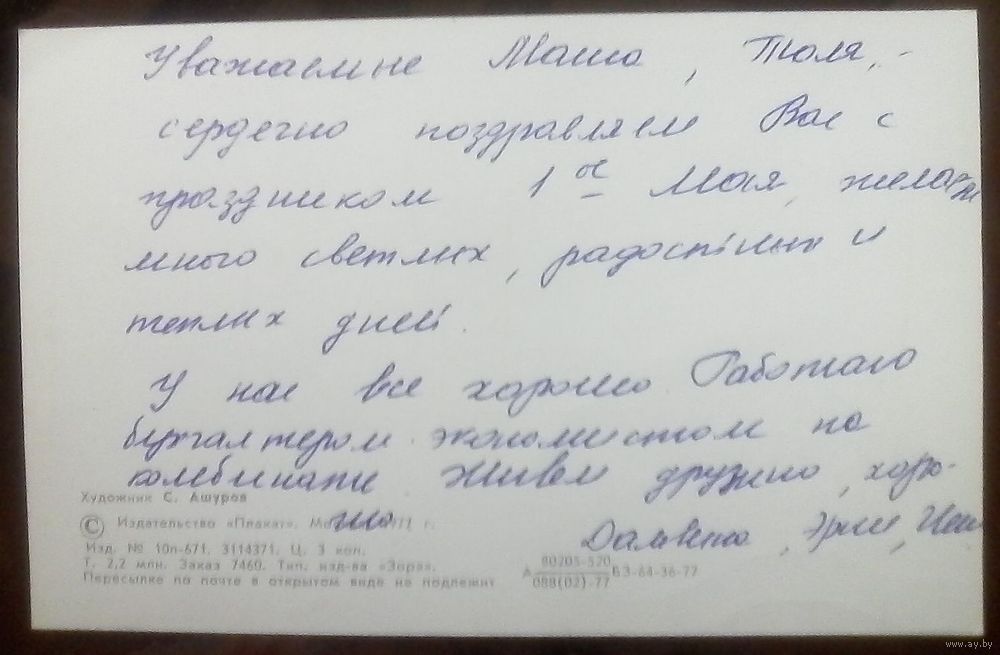 Уважаемые Маша, Толя, -
сердечно поздравляем Вас с
праздником 1 ое Мая, желаем
много светлых, радостных и
теплых дней.
У нас все хорошо. Работаю
бухгалтером экономистом на
комбинате. Живем дружно, хоро-
шо
Художник С. Ашуров
© Издательство «Плакат». г.
Изд. № 10п-671. 3114371. Ц. 3 коп.
Т. 2,2 млн. Заказ 7460. Тип. изд-ва «Зоря».
Пересылке по почте в открытом виде не подлежит
А 80205-520 / 088(02)-77 БЗ-64-36-77
www.ay.by